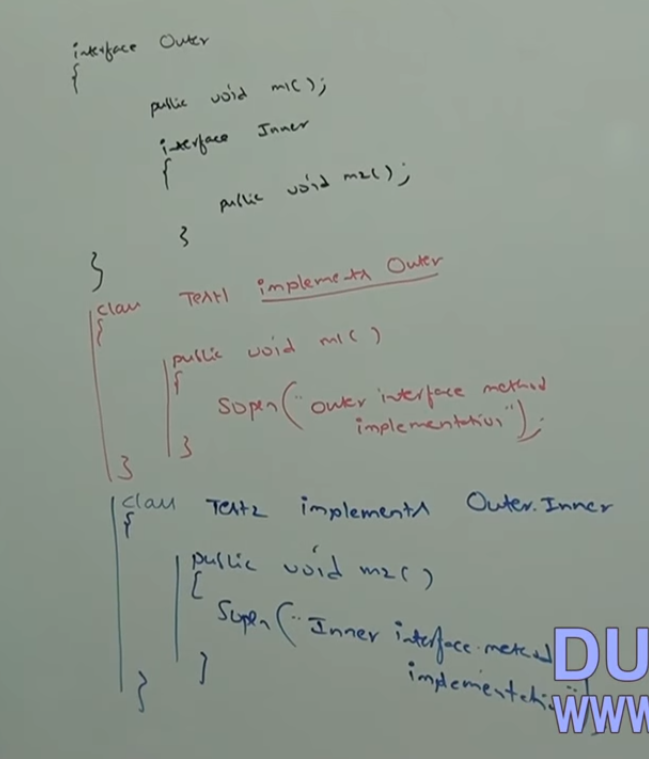 interface Outer
{
public void m1();
interface Inner
{
public void m2();
}
}
class Test1 implements Outer
{
public void m1()
{
Sopln("Outer interface method
implementation");
}
}
class Test2 implements Outer.Inner
{
public void m2()
{
Sopln("Inner interface method
implementation"
}
}
DU
WWW